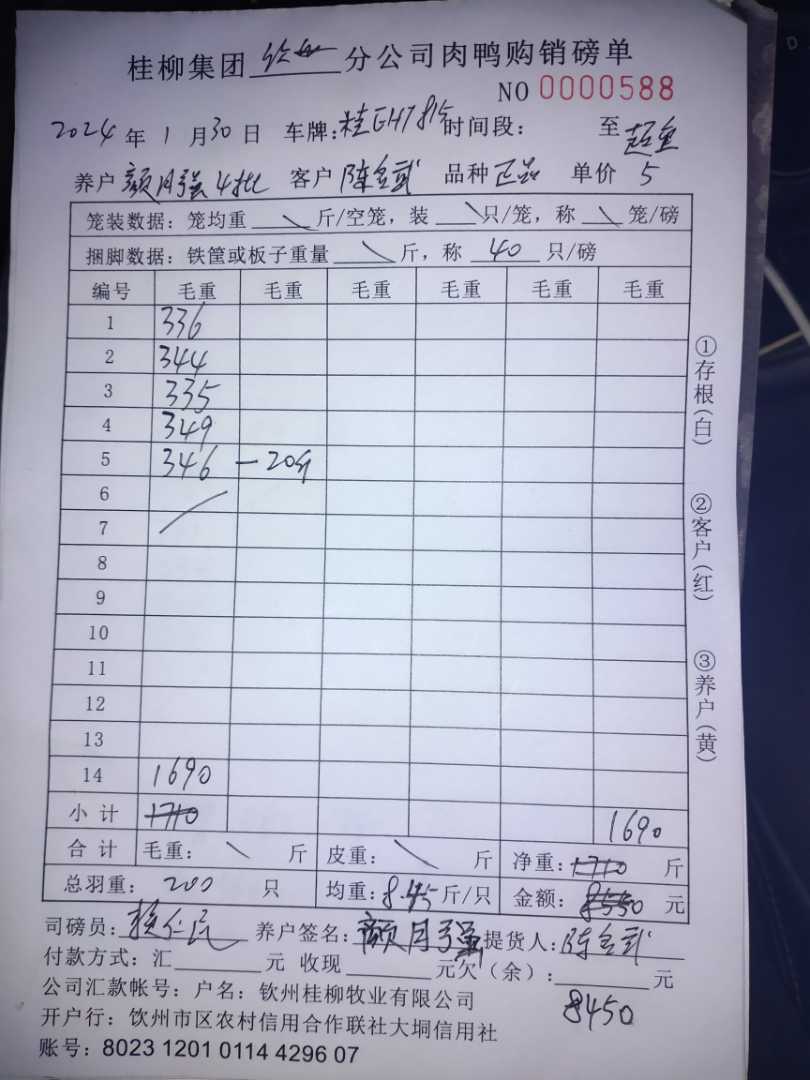 桂柳集团 钦州 分公司肉鸭购销磅单
NO 0000588
2024 年 1 月 30 日 车牌: 时间段: 至
养户 颜月强4批 客户 陈金武 品种 正品 单价 5
笼装数据：笼均重 \ 斤/空笼，装 \ 只/笼，称 \ 笼/磅
捆脚数据：铁筐或板子重量 \ 斤，称 40 只/磅
编号 毛重 毛重 毛重 毛重 毛重 毛重
1 336
2 344
3 335
4 349
5 346 -20斤
6
7
8
9
10
11
12
13
14 1690
小计 1710 1690
合计 毛重： \ 斤 皮重： \ 斤 净重：1710 斤
总羽重： 200 只 均重：8.45 斤/只 金额：8550 元
司磅员： 养户签名：颜月强 提货人：陈金武
付款方式：汇 元 收现 元欠（余）： 元
8450
公司汇款帐号：户名：钦州桂柳牧业有限公司
开户行：饮州市区农村信用合作联社大垌信用社
账号：8023 1201 0114 4296 07
①存根（白）
②客户（红）
③养户（黄）